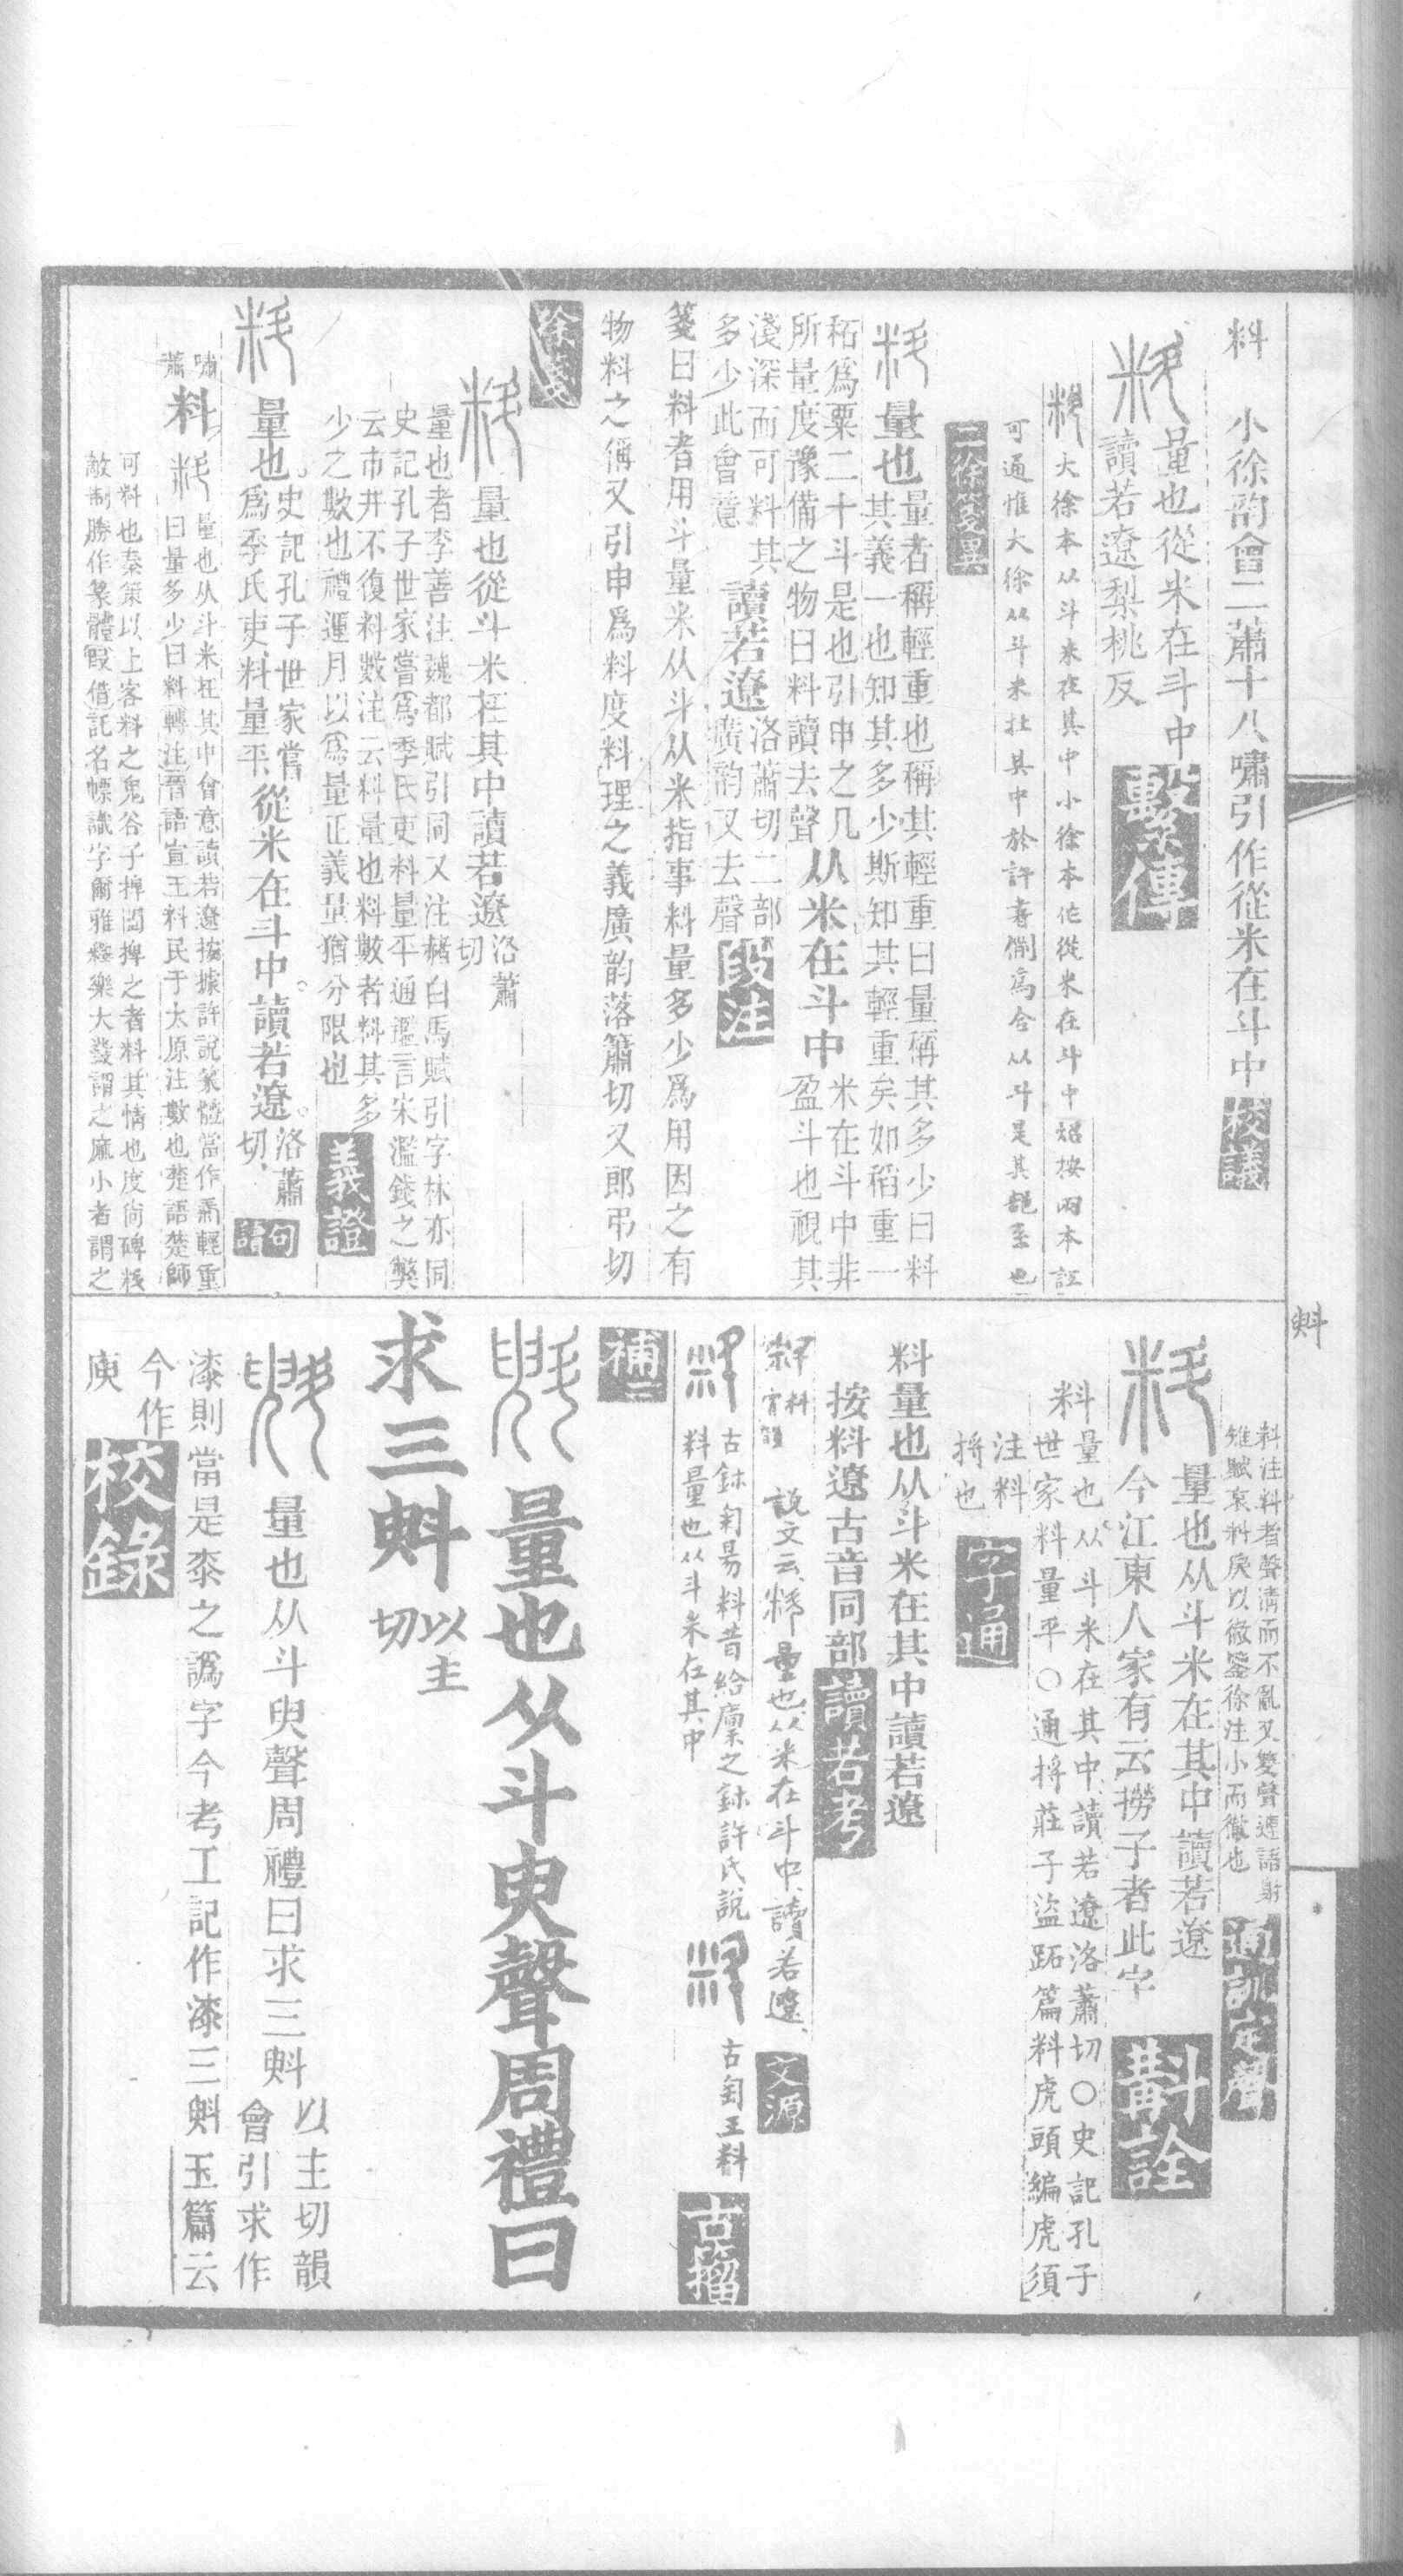 料　小徐韵會二蕭十八嘯引作從米在斗中　校議
量也從米在斗中
讀若遼梨桃反　繫傳
大徐本从斗米在其中小徐本作從米在斗中 按兩本
可通惟大徐从斗米在其中於許書例爲合从斗是其 也
二徐箋異
量也　量者稱輕重也稱其輕重曰量稱其多少曰料
其義一也知其多少斯知其輕重矣如稻重一
䄷爲粟二十斗是也引申之凡
所量度豫備之物曰料讀去聲　从米在斗中　米在斗中非
盈斗也視其
淺深而可料其
多少此會意　讀若遼　洛蕭切二部
廣韵又去聲　段注
箋曰料者用斗量米从斗从米指事料量多少爲用因之有
物料之稱又引申爲料度料理之義廣韵落簫切又郎弔切
徐箋
量也從斗米在其中讀若遼　洛蕭
切
量也者李善注魏都賦引同又注赭白馬賦引字林亦同
史記孔子世家嘗爲季氏吏料量平通鑑言宋濫錢之獘
云市井不復料數注云料量也料數者料其多
少之數也禮運月以爲量正義量猶分限也　義證
量也　史記孔子世家嘗
爲季氏吏料量平　從米在斗中讀若遼　洛蕭
切　句讀
嘯
蕭　料　量也从斗米在其中會意讀若遼按據許說篆體當作 輕重
曰量多少曰料轉注晉語宣王料民于太原注數也楚語楚師
可料也秦策以上客料之鬼谷子捭闔捭之者料其情也度尚碑 
敵制勝作 體假借託名幖識字爾雅釋樂大鼗謂之麻小者謂之
料注料者聲清而不亂又雙聲連語射
雉賦 料戾以徹鑒徐注小而徹也　通訓定聲
量也从斗米在其中讀若遼
今江東人家有云撈子者此字　斠詮
料　量也从斗米在其中讀若遼洛蕭切〇史記孔子
世家料量平〇通捋莊子盜跖篇料虎頭編虎須
注料
捋也　字通
料量也从斗米在其中讀若遼
按料遼古音同部　讀若考
說文云 量也从米在斗中讀若遼　文源
古鉨匋昜料昔給廩之鉨許氏說
料量也从斗米在其中　古匋王料　古籀
補二
量也从斗臾聲周禮曰
求三㪷　以主
切
量也从斗臾聲周禮曰求三㪷　以主切韻
會引求作
漆則當是桼之譌字今考工記作漆三㪷玉篇云
今作
庾　校錄